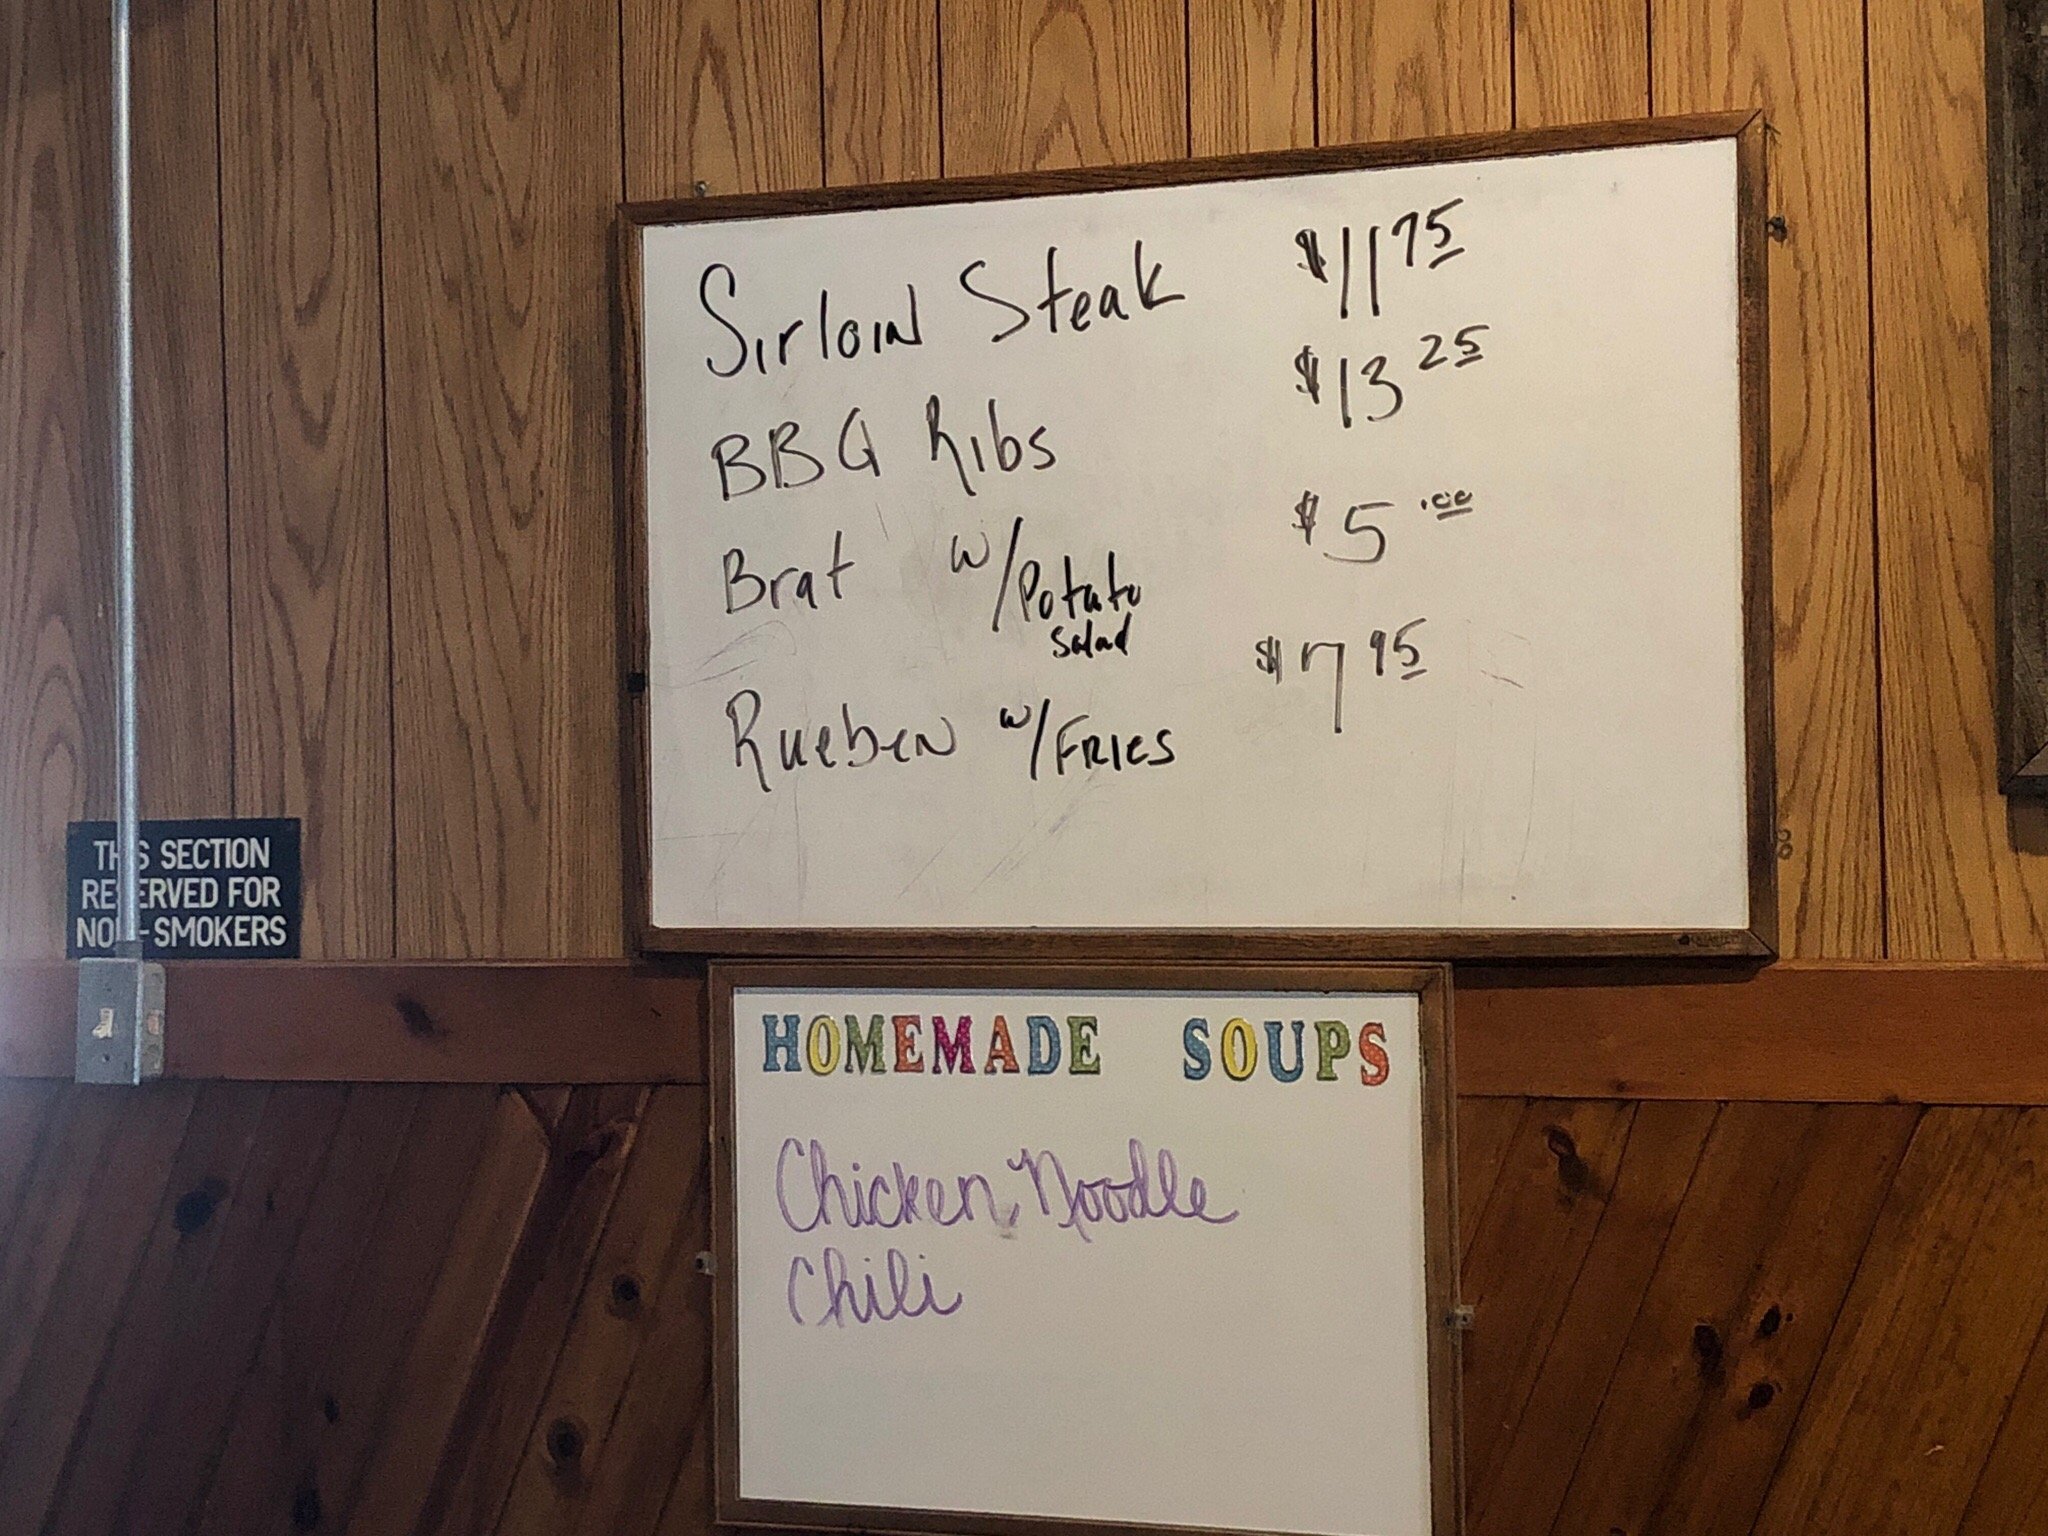 Sirloin Steak $11 75
BBQ Ribs $13 25
Brat w/Potato $5.00
Salad
Rueben w/Fries $7 95
THIS SECTION
RESERVED FOR
NON-SMOKERS
HOMEMADE SOUPS
Chicken Noodle
Chili